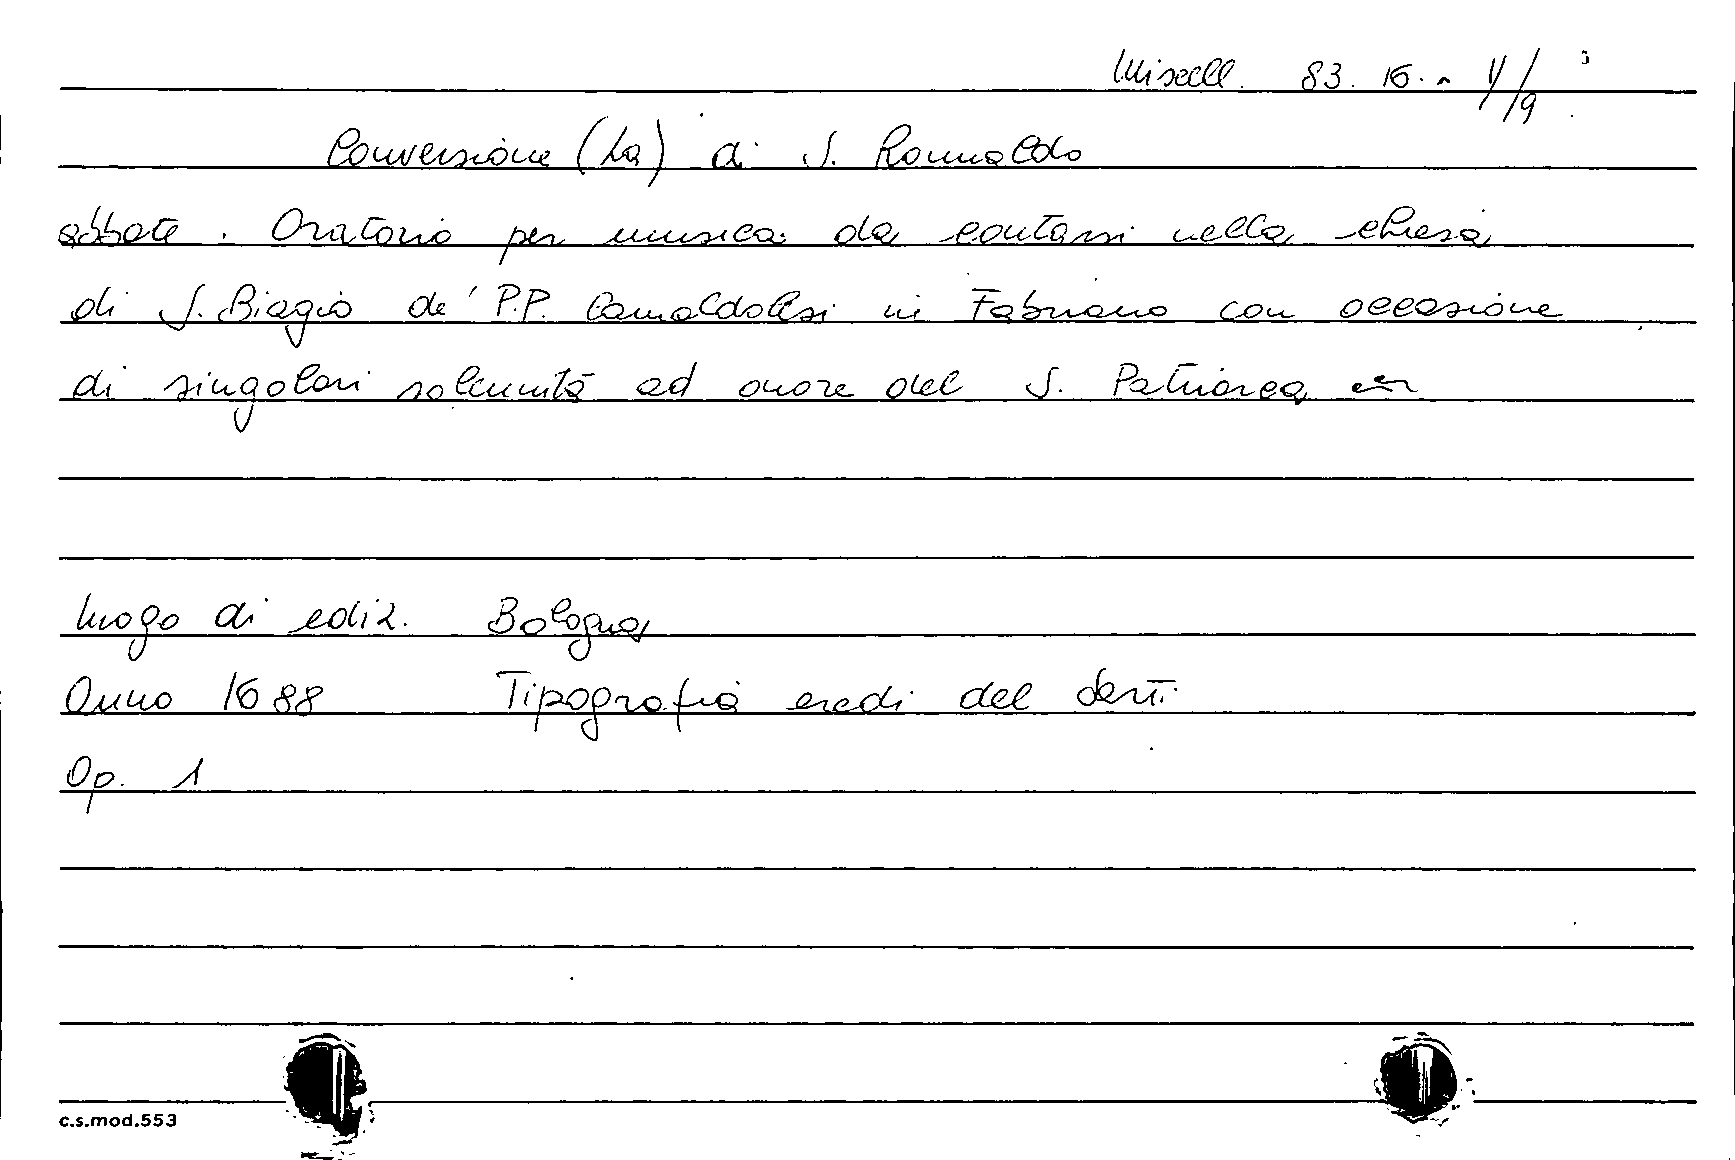 Miscell. 83. 16. - V/9
Conversione (La) di S. Romualdo
abbate. Oratorio per musica da cantarsi nella chiesa
di S. Biagio de' P.P. Camaldolesi in Fabriano con occasione
di singolari solennità ad onore del S. Patriarca
luogo di ediz. Bologna
Anno 1688 Tipografia eredi del Sarti
Op. 1
c.s.mod.553